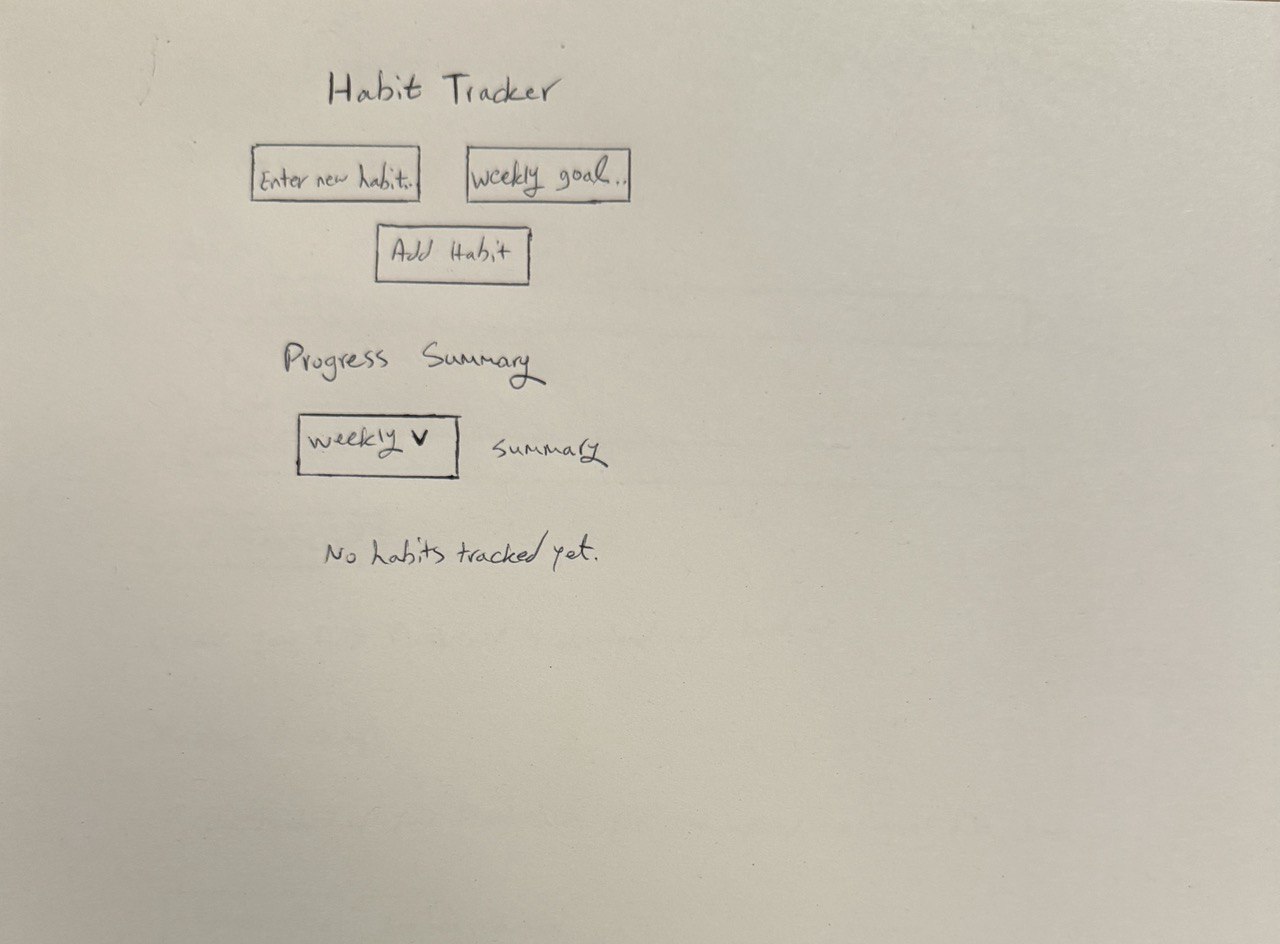 Habit Tracker
Enter new habit.. weekly goal..
Add Habit
Progress Summary
weekly v summary
No habits tracked yet.